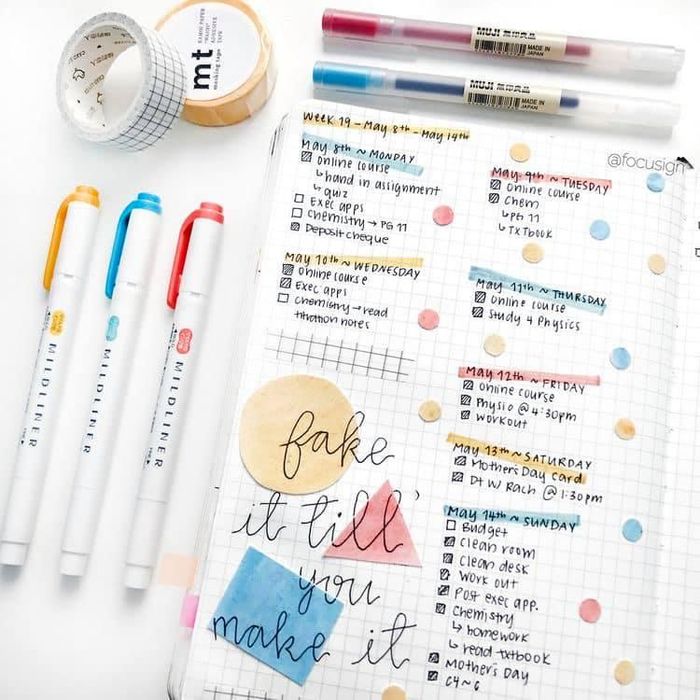 mt
masking tape
MUJI 無印良品
MADE IN
JAPAN
MUJI 無印良品
MADE IN
JAPAN
@focusign
MILDLINER
MILDLINER
MILDLINER
Week 19 - May 8th - May 14th
May 8th ~ MONDAY
online course
↳ hand in assignment
↳ quiz
Exec apps
Chemistry → PG 11
Deposit cheque
May 9th ~ TUESDAY
Online course
Chem
↳ PG 11
↳ TXTbook
May 10th ~ WEDNESDAY
Online course
Exec apps
Chemistry → read
titration notes
May 11th ~ THURSDAY
Online course
Study 4 Physics
May 12th ~ FRIDAY
Online course
Physio @ 4:30pm
Workout
May 13th ~ SATURDAY
Mother's Day card
Dt w/ Rach @ 1:30pm
May 14th ~ SUNDAY
Budget
Clean room
Clean desk
Work out
Post exec app.
Chemistry
↳ homework
↳ read txtbook
Mother's Day
C4~6
fake
it till'
you
make it